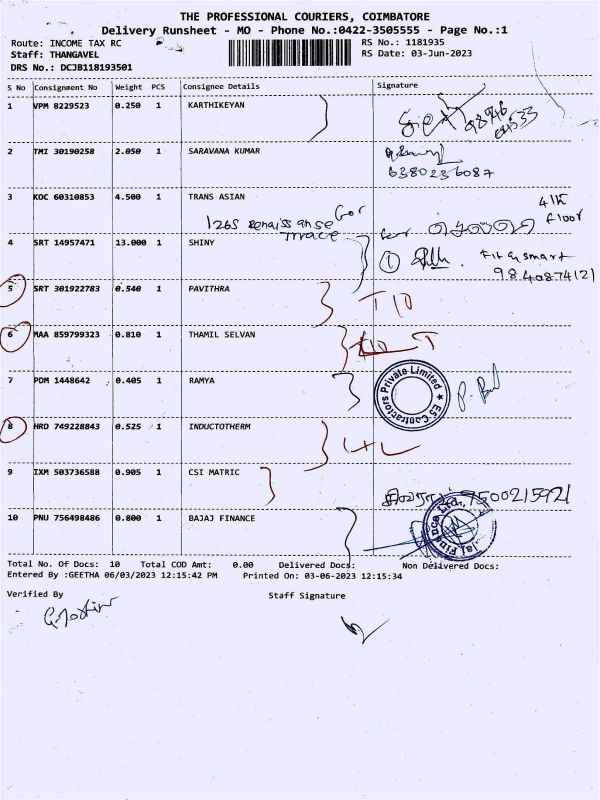 THE PROFESSIONAL COURIERS, COIMBATORE
Delivery Runsheet - MO - Phone No.:0422-3505555 - Page No.:1
Route: INCOME TAX RC
RS No.: 1181935
Staff: THANGAVEL
RS Date: 03-Jun-2023
DRS No.: DCJB118193501
S No Consignment No Weight PCS Consignee Details Signature
1 VPM 8229523 0.250 1 KARTHIKEYAN
2 TMI 30190258 2.050 1 SARAVANA KUMAR
6380236087
3 KOC 60310853 4.500 1 TRANS ASIAN
4th
floor
1265
4 SRT 14957471 13.000 1 SHINY
1
9840874121
5 SRT 301922783 0.540 1 PAVITHRA
6 MAA 859799323 0.810 1 THAMIL SELVAN
7 PDM 1448642 0.405 1 RAMYA
ES Contractors Private Limited
8 HRD 749228843 0.525 1 INDUCTOTHERM
9 IXM 503736588 0.905 1 CSI MATRIC
7500215921
10 PNU 756498486 0.800 1 BAJAJ FINANCE
Total No. Of Docs: 10 Total COD Amt: 0.00 Delivered Docs: Non Delivered Docs:
Entered By :GEETHA 06/03/2023 12:15:42 PM Printed On: 03-06-2023 12:15:34
Verified By Staff Signature